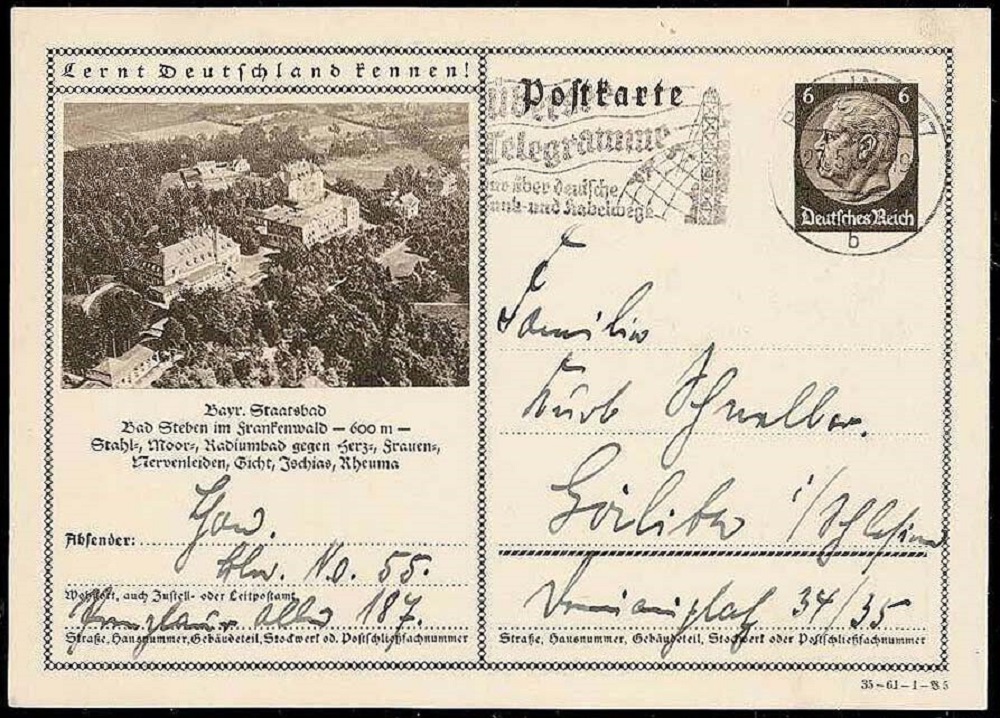 Lernt Deutschland kennen!
Bayr. Staatsbad
Bad Steben im Frankenwald — 600 m —
Stahl-, Moor-, Radiumbad gegen Herz-, Frauen-,
Nervenleiden, Gicht, Ischias, Rheuma
Absender:
Bln. N.O. 55.
Wohnort, auch Zustell- oder Leitpostamt
Prenzlauer Allee 187.
Straße, Hausnummer, Gebäudeteil, Stockwerk od. Postschließfachnummer
Postkarte
Telegramme
nur über deutsche
Funk- und Kabelwege
6 6
Deutsches Reich
b
Familie
Kurt
Görlitz i/Schlesien
34/35
Straße, Hausnummer, Gebäudeteil, Stockwerk oder Postschließfachnummer
35-61-1-B5